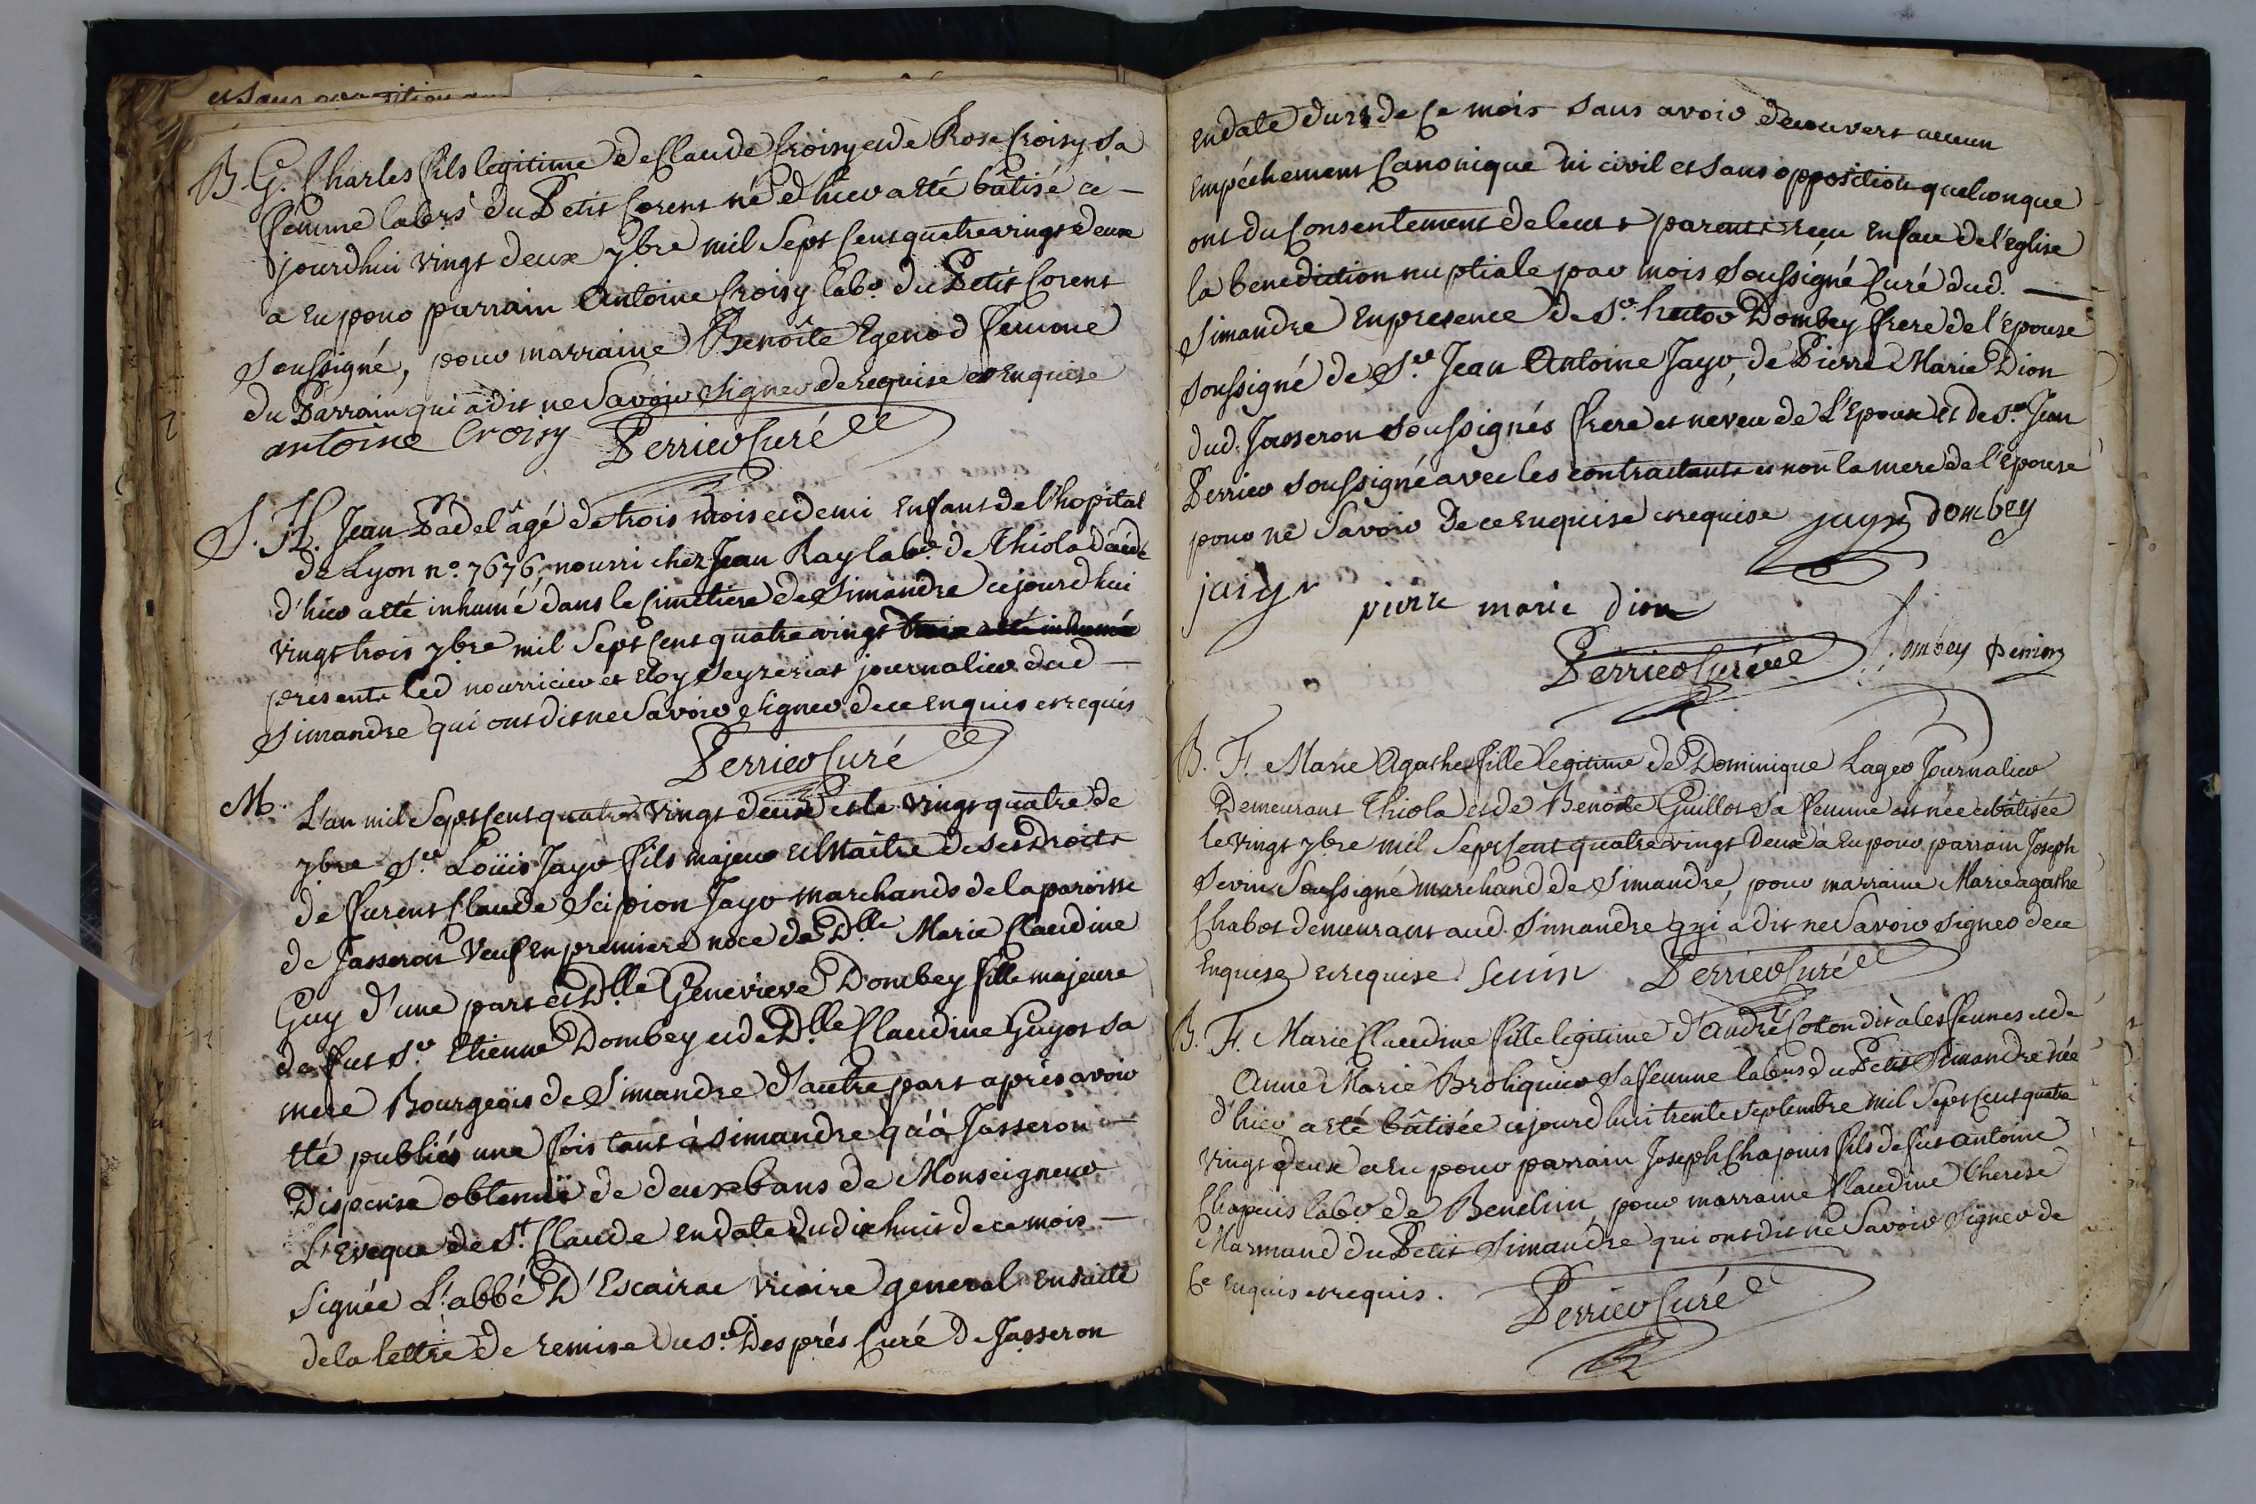 et sans opposition
B. G. Charles fils legitime de Claude Croisy et de Rose Croisy sa
femme labrs du Petit Corent né d'hier a eté bâtisé ce
jourdhui vingt deux 7bre mil sept cent quatre vingt deux
a eu pour parrain Antoine Croisy labr. du Petit Corent
soussigné, pour marraine Benoîte Egenod femme
du Parrain qui a dit ne savoir signer de requise et enquise
antoine Croisy Perrier Curé
S. H. Jean Padel âgé de trois mois et demi enfant de l'hopital
de Lyon n°. 7676 nourri chez Jean Ray labr. de Thiola décedé
d'hier a eté inhumé dans le cimetiere de Simandre ce jourdhui
vingt trois 7bre mil sept cent quatre vingt
presents led nourricier et Eloy Seyzeriat journalier dud
Simandre qui ont dit ne savoir signer de ce enquis et requis
Perrier Curé
M. L'an mil sept cent quatre vingt deux et le vingt quatre de
7bre Sr. Loüis Jayr fils majeur et Maître de ses Droits
de furent Claude Scipion Jayr marchands de la paroisse
de Jasseron Veuf en premiere noce de Dlle Marie Claudine
Guy d'une part et Dlle Genevieve Dombey fille majeure
de fut Sr Etienne Dombey et de Dlle Claudine Guyot sa
mere Bourgeois de Simandre d'autre part après avoir
eté publiés une fois tant à Simandre qu'à Jasseron
Dispense obtenuë de deux bans de Monseigneur
L'Eveque de St. Claude en date du dix huit de ce mois
signée L'abbé D'Escairac vicaire general ensuite
de la lettre de remise du Sr. Després Curé de Jasseron
en date du 23 de ce mois sans avoir decouvert aucun
empéchement Canonique ni civil et sans opposition quelconque
ont du Consentement de leurs parents reçu en face de l'eglise
la benediction nuptiale par mois soussigné Curé dud.
Simandre en presence de Sr. hector Dombey frere de l'epouse
soussigné de Sr. Jean Antoine Jayr, de Pierre Marie Dion
dud. Jasseron soussignés frere et neveu de l'Epoux et de Sr. Jean
Perrier soussigné avec les contractants et non la mere de l'epouse
pour ne savoir de ce enquise et requise jayr dombey
jaiyr pierre marie dion
Perrier Curé Dombey Perrier
B. F. Marie Agathe fille legitime de Dominique Lager Journalier
Demeurant Thiola et de Benoîte Guillot sa femme est née et bâtisée
le vingt 7bre mil sept cent quatre vingt Deux a eu pour parrain Joseph
Sevin soussigné marchand de Simandre, pour marraine Marie agathe
Chabot demeurant aud. Simandre qui a dit ne savoir signer de ce
Enquise et requise Sevin Perrier Curé
B. F. Marie Claudine fille legitime d'André Coton dit à les fennes et de
Anne Marie Broliquier sa femme labrs du Petit Simandre née
d'hier a eté bâtisée ce jourdhui trente septembre mil sept cent quatre
vingt deux a eu pour parrain Joseph Chapuis fils de fut Antoine
Chapuis labr. de Benelin pour marraine Claudine Therese
Marmand du Petit Simandre qui ont dit ne savoir signer de
Ce enquis et requis. Perrier Curé